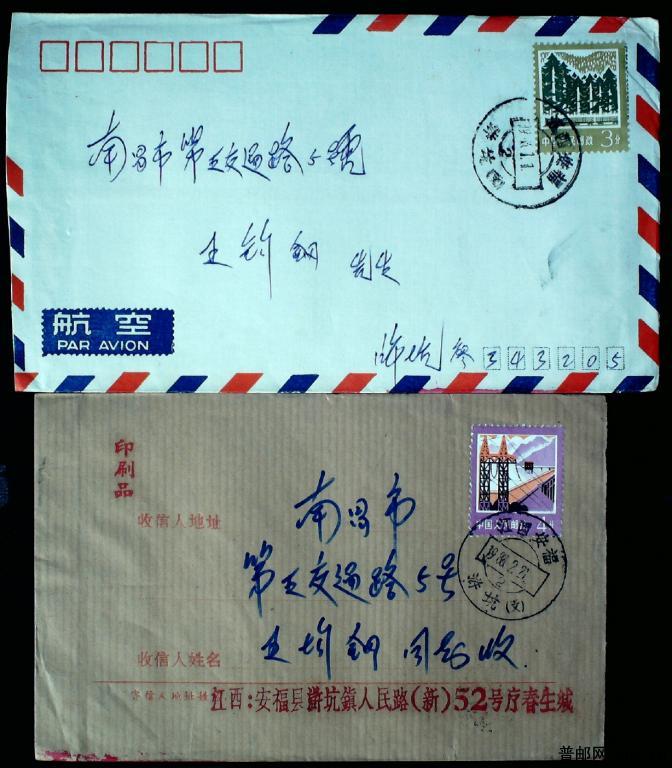 中国人民邮政 3分
江西安福
南昌市第五交通路5號
王
先生
航空
PAR AVION
343205
印刷品
中国人民邮政 4分
收信人地址
南昌市
江西安福
第五交通路5号
收信人姓名
王 同志收
寄信人地址姓
江西：安福县浒坑鎮人民路（新）52号序春生缄
普邮网